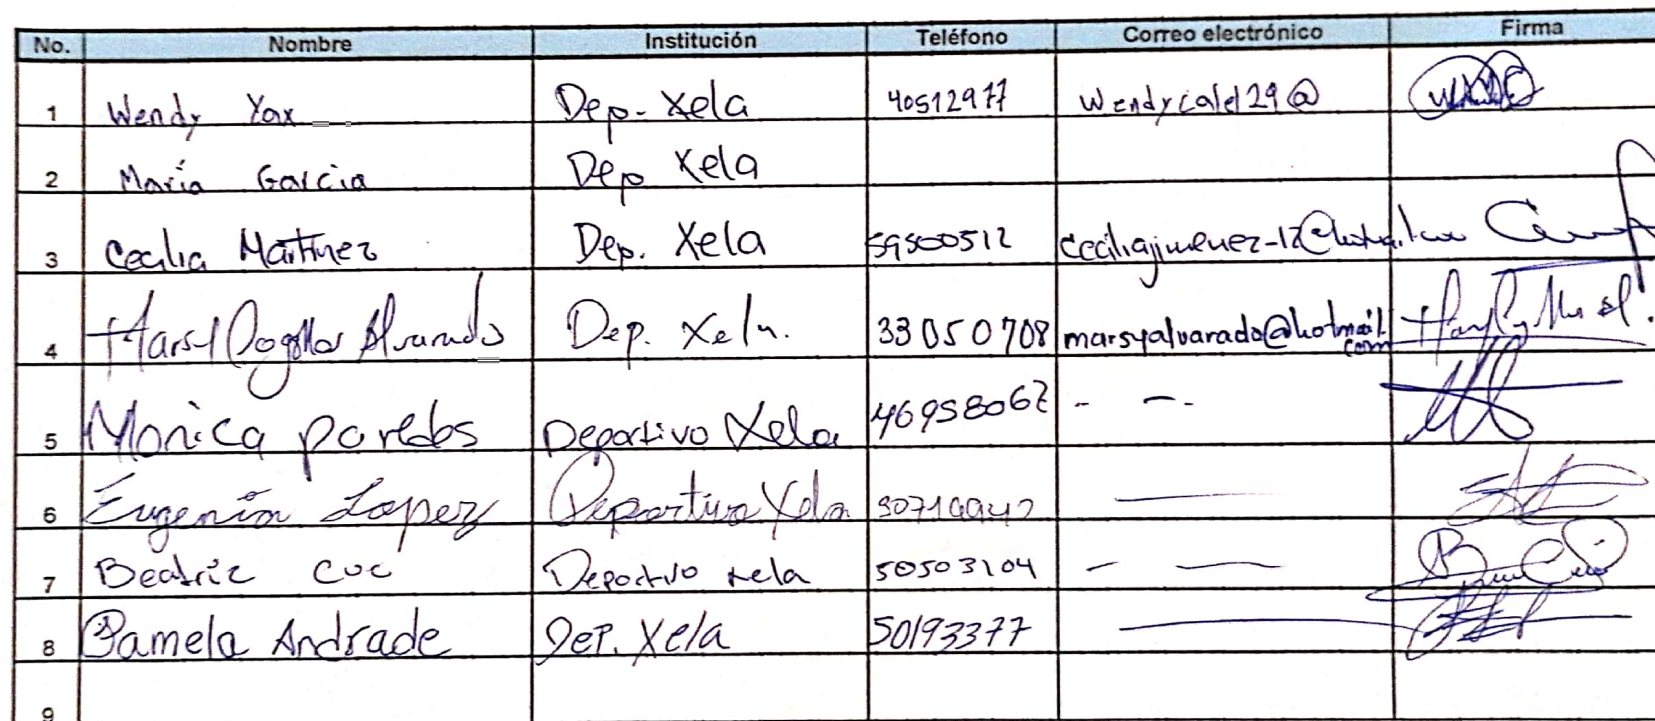 No. Nombre Institución Teléfono Correo electrónico Firma
1 Wendy Yax Dep. Xela 40512977 Wendycalel29@
2 María Garcia Dep Xela
3 Cecilia Martinez Dep. Xela 59500512 Ceciliajimenez-12@hotmail.com
4 Alvarado Dep. Xela. 33050708 marsyalvarado@hotmail.com
5 Monica paredes Deportivo Xela 46958062 - - -
6 Eugenia Lopez Deportivo Xela
7 Beatriz Cuc Deportivo xela 50503104 - —
8 Pamela Andrade Dep. Xela 50193377
9